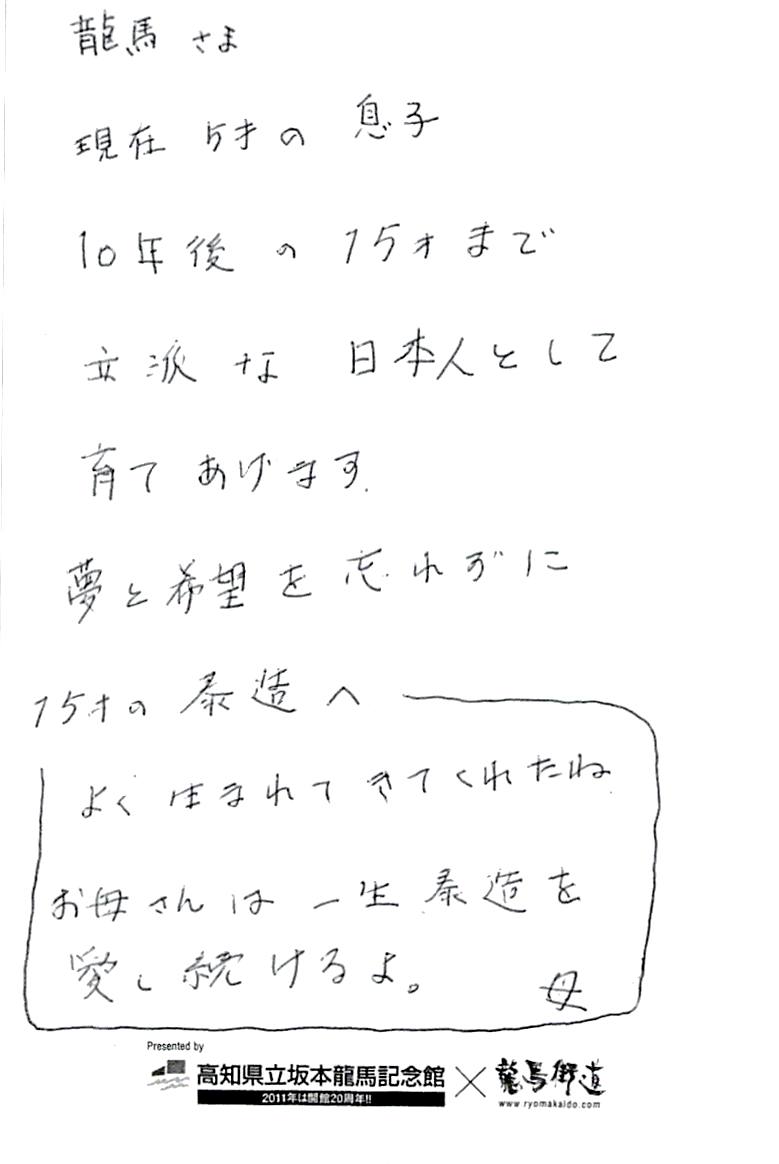 龍馬 さま
現在 5才の 息子
10年後 の 15才 まで
立派 な 日本人として
育て あげます.
夢と希望 を 忘れずに
15才の 泰造 へ
よく 生まれて きてくれたね
お母さん は 一生 泰造を
愛し 続けるよ。 母
Presented by
高知県立坂本龍馬記念館 × 龍馬街道
2011年は開館20周年!!
www.ryomakaido.com